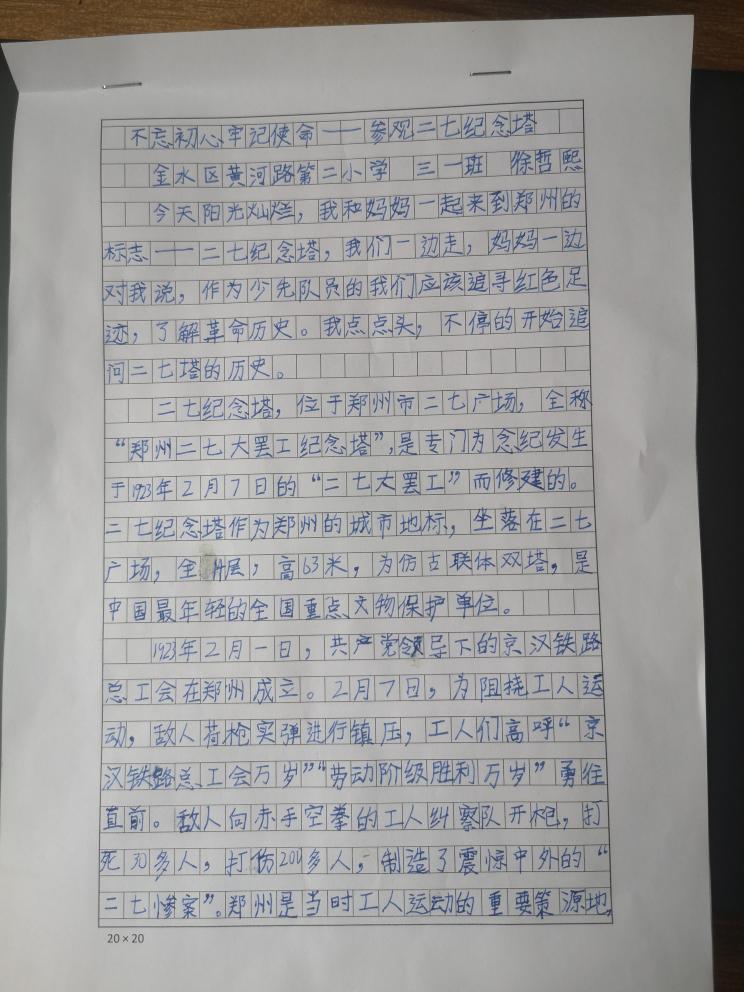 不忘初心牢记使命——参观二七纪念塔
金水区黄河路第二小学 三一班 徐哲熙
今天阳光灿烂，我和妈妈一起来到郑州的
标志——二七纪念塔，我们一边走，妈妈一边
对我说，作为少先队员的我们应该追寻红色足
迹，了解革命历史。我点点头，不停的开始追
问二七塔的历史。
二七纪念塔，位于郑州市二七广场，全称
“郑州二七大罢工纪念塔”，是专门为念纪发生
于1923年2月7日的“二七大罢工”而修建的。
二七纪念塔作为郑州的城市地标，坐落在二七
广场，全 层，高63米，为仿古联体双塔，是
中国最年轻的全国重点文物保护单位。
1923年2月一日，共产党领导下的京汉铁路
总工会在郑州成立。2月7日，为阻挠工人运
动，敌人荷枪实弹进行镇压，工人们高呼“京
汉铁路总工会万岁”“劳动阶级胜利万岁”勇往
直前。敌人向赤手空拳的工人纠察队开枪，打
死30多人，打伤200多人，制造了震惊中外的“
二七惨案”。郑州是当时工人运动的重要策源地，
20×20